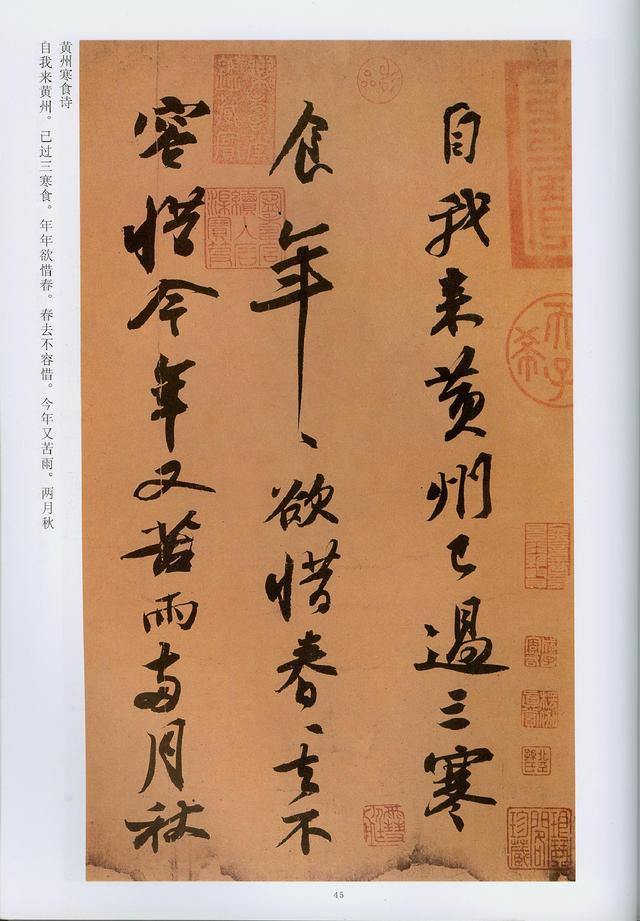 自我来黄州已過三寒
食年〻欲惜春〻去不
容惜今年又苦雨兩月秋
黄州寒食诗
自我来黄州。已过三寒食。年年欲惜春。春去不容惜。今年又苦雨。两月秋
45